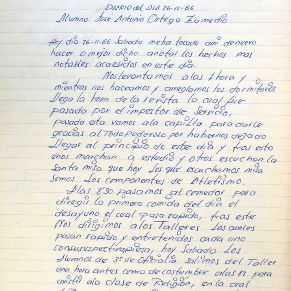 DIARIO del DIA 26-11-66
Alumno José Antonio Ortega
Hoy día 26-11-66 Sabado me ha tocado a mi de nuevo
hacer o mejor dicho anotar los hechos mas
notables acaecidos en este día.
Nos levantamos a las 7 hora y
mientras nos haceamos y arreglamos los dormitorios
llega la hora de la revista la cual fue
pasada por el inspector de servicio,
pasada esta vamos a la capilla para darle
gracias al Todopoderoso por habernos dejado
llegar al principio de este día y tras esto
unos marchan a estudio y otros escuchan la
Santa misa que hoy los que escuchamos misa
somos los componentes de Atletismo.
A las 8'30 pasamos al comedor para
dirigir la primera comida del día el
desayuno el cual pasa rapido, tras este
nos dirigimos a los Talleres los cuales
pasan rapido y entretenidos cada uno
con sus respectivas, hoy Sabado los
Alumnos de 3º de Oficialía salimos del Taller
una hora antes como de costumbre a las 12 para
asistir a la clase de Religión, en la cual